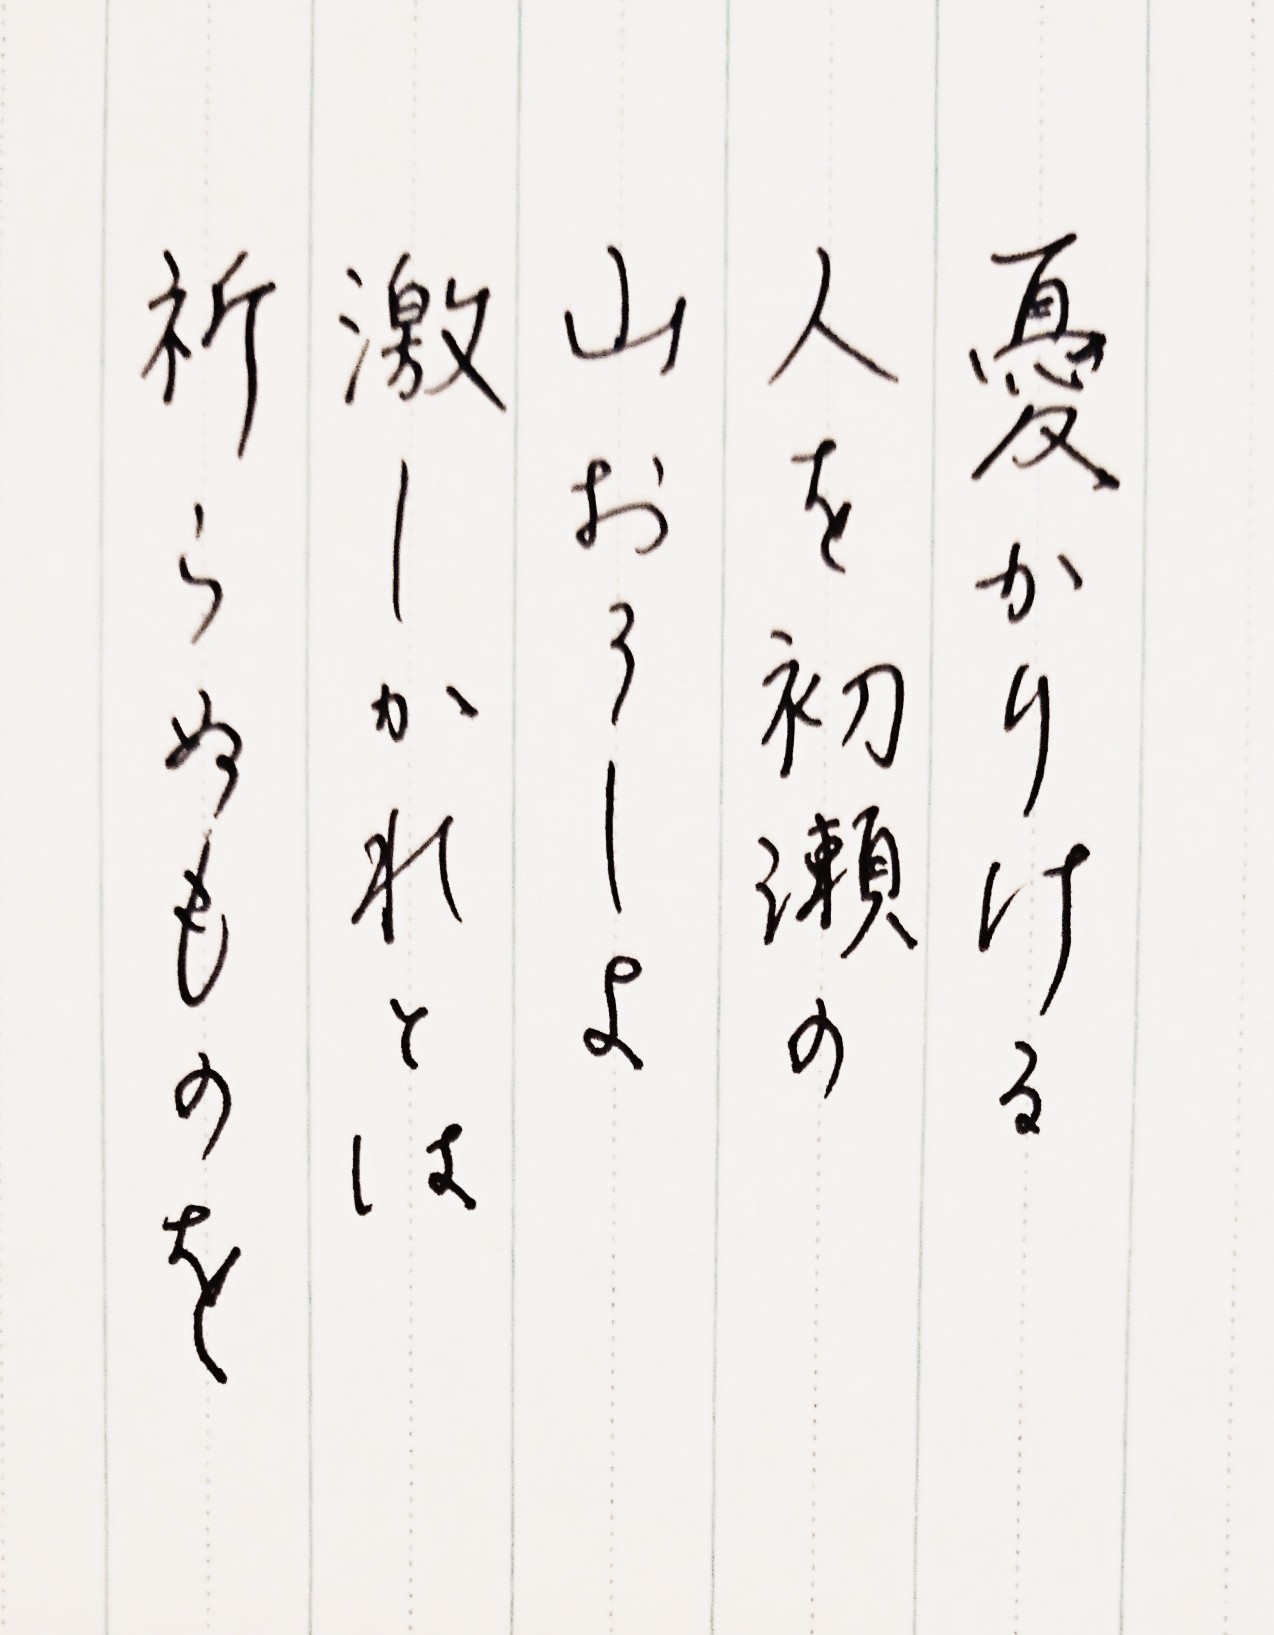 憂かりける
人を初瀬の
山おろしよ
激しかれとは
祈らぬものを